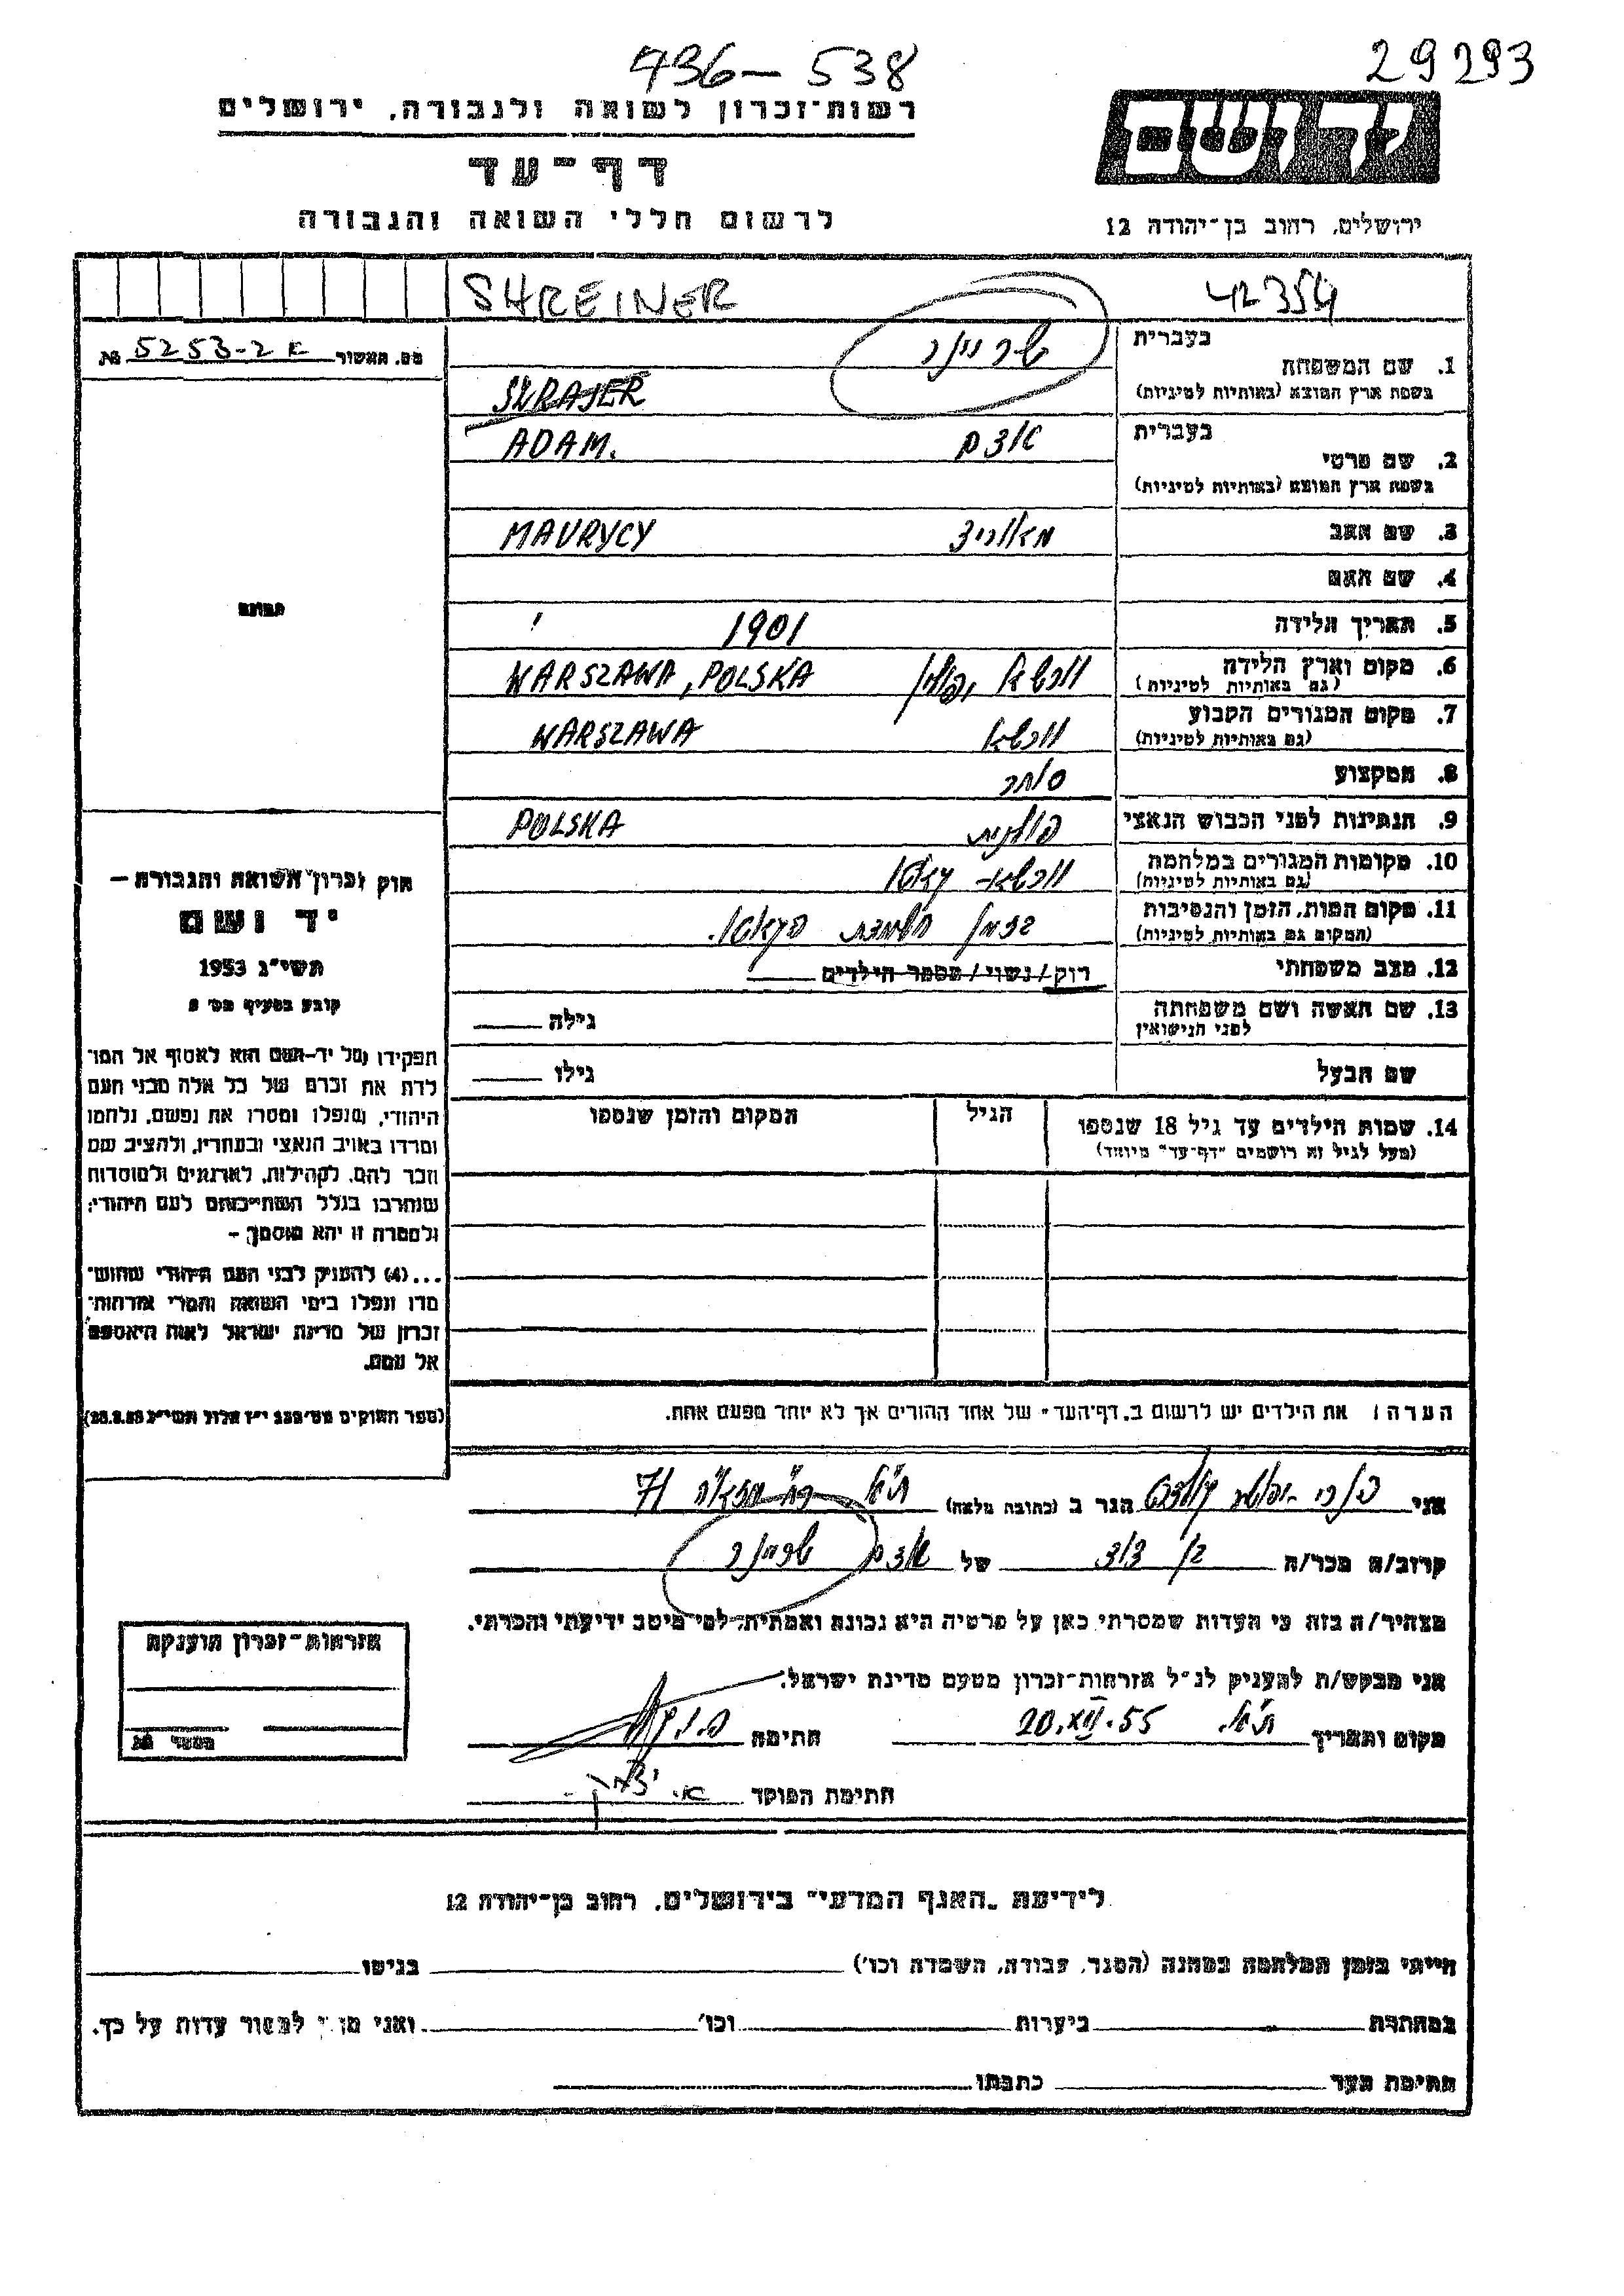 436-538
29293
רשות-זכרון לשואה ולגבורה, ירושלים
דף-עד
לרשום חללי השואה והגבורה
ידושם
ירושלים, רחוב בן-יהודה 12
SHREINER
42354
מס. האשור 5253-2 א №
1. שם המשפחה
בעברית שריינר
בשפת ארץ המוצא (באותיות לטיניות)
ADAM. אדם
2. שם פרטי
בעברית
בשפת ארץ המוצא (באותיות לטיניות)
3. שם האב מאוריצי MAURYCY
4. שם האם
5. תאריך הלידה 1901
6. מקום וארץ הלידה ורשא, פולין WARSZAWA, POLSKA
(גם באותיות לטיניות)
7. מקום המגורים הקבוע ורשא WARSZAWA
(גם באותיות לטיניות)
8. המקצוע סוחר
9. הנתינות לפני הכבוש הנאצי פולנית POLSKA
10. מקומות המגורים במלחמה ורשא - גאטו
(גם באותיות לטיניות)
11. מקום המות, הזמן והנסיבות בזמן השמדת הגאטו.
(המקום גם באותיות לטיניות)
12. מצב משפחתי רוק/נשוי/מספר הילדים
13. שם האשה ושם משפחתה
לפני הנישואין
גילה
שם הבעל
גילו
14. שמות הילדים עד גיל 18 שנספו
(מעל לגיל זה רושמים "דף-עד" מיוחד)
הגיל
המקום והזמן שנספו
תמונה
חוק זכרון השואה והגבורה —
יד ושם
תשי"ג 1953
קובע בסעיף מס'
תפקידו של יד-ושם הוא לאסוף אל המו-
לדת את זכרם של כל אלה מבני העם
היהודי, שנפלו ומסרו את נפשם, נלחמו
ומרדו באויב הנאצי ובעוזריו, ולהציב שם
וזכר להם, לקהילות, לארגונים ולמוסדות
שנחרבו בגלל השתייכותם לעם היהודי;
ולמטרה זו יהא מוסמך -
...(4) להעניק לבני העם היהודי שהוש-
מדו ונפלו בימי השואה והמרי אזרחות-
זכרון של מדינת ישראל לאות היאספם
אל עמם.
(ספר החוקים מס' 132 י"ז אלול תשי"ג 28.8.53)
הערה: את הילדים יש לרשום ב"דף-העד" של אחד ההורים אך לא יותר מפעם אחת.
אני הגר ב (כתובת מלאה) ת"א רח' 71
קרוב/ה מכר/ה בן דוד של אדם שריינר
מצהיר/ה בזה כי העדות שמסרתי כאן על פרטיה היא נכונה ואמתית לפי מיטב ידיעתי והכרתי.
אני מבקש/ת להעניק לנ"ל אזרחות-זכרון מטעם מדינת ישראל.
מקום ותאריך ת"א. 20.XII.55 חתימה
חתימת הפוקד
אזרחות-זכרון הוענקה
מספר №
לידיעת "האגף המדעי" בירושלים, רחוב בן-יהודה 12
הייתי בזמן המלחמה במחנה (הסגר, עבודה, השמדה וכו') בגיטו
במחתרת ביערות וכו' ואני מוכן למסור עדות על כך.
חתימת העד כתבתו